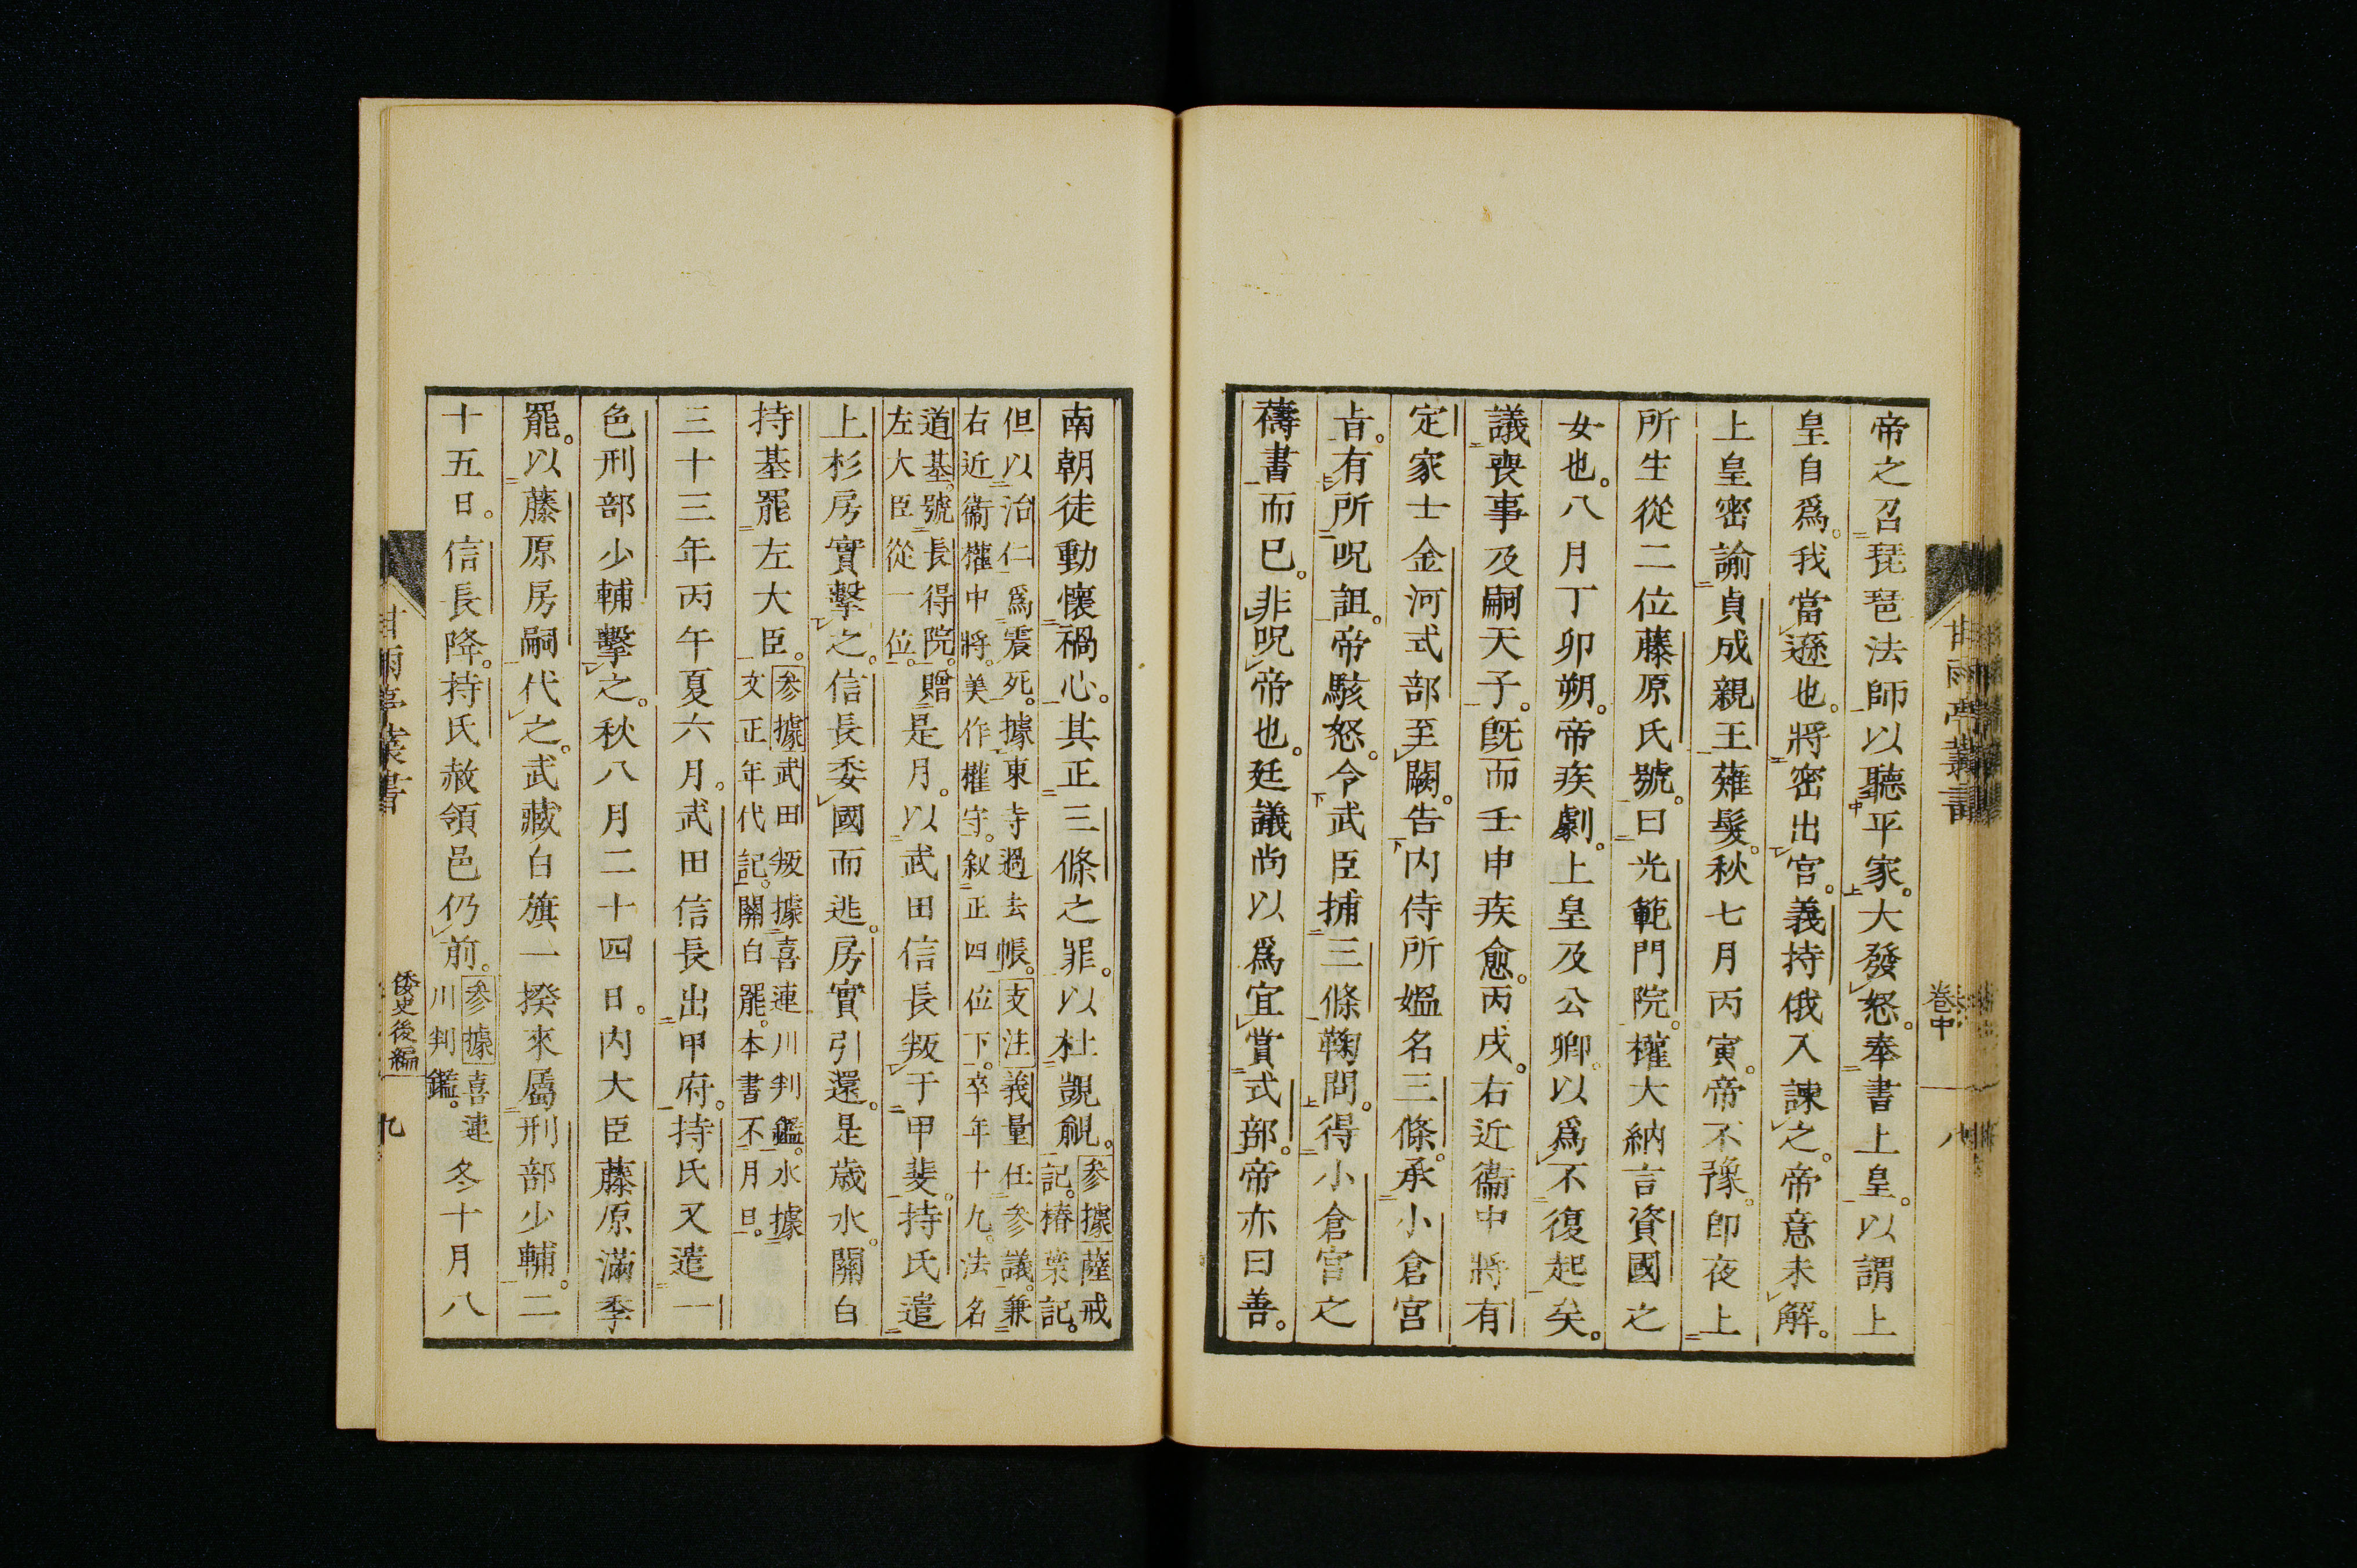 帝之召琵琶法師以聽平家。大發怒。奉書上皇。以謂上
皇自爲。我當遜也。將密出宮。義持俄入諫之。帝意未解。
上皇密諭貞成親王薙髮。秋七月丙寅。帝不豫。卽夜上
所生從二位藤原氏號。曰光範門院。權大納言資國之
女也。八月丁卯朔。帝疾劇。上皇及公卿。以爲不復起矣。
議喪事及嗣天子。旣而壬申疾愈。丙戌。右近衞中將有
定家士金河式部至闕。告内侍所媼名三條。承小倉宮
㫖。有所呪詛。帝駭怒。令武臣捕三條鞫問。得小倉宮之
禱書而已。非呪帝也。廷議尚以爲宜賞式部。帝亦曰善。
甘雨亭叢書
卷中
八
南朝徒動懷禍心。其正三條之罪。以杜覬覦。參據薩戒
記。椿葉記。
但以治仁爲震死。據東寺過去帳。支注義量任參議。兼
右近衞權中將。美作權守。叙正四位下。卒年十九。法名
道基。號長得院。贈
左大臣從一位。
是月。以武田信長叛于甲斐。持氏遣
上杉房實擊之。信長委國而逃。房實引還。是歲水。關白
持基罷左大臣。參據武田叛據喜連川判鑑。水據
文正年代記。關白罷。本書不月日。
三十三年丙午夏六月。武田信長出甲府。持氏又遣一
色刑部少輔擊之。秋八月二十四日。内大臣藤原滿季
罷。以藤原房嗣代之。武藏白旗一揆來屬刑部少輔。二
十五日。信長降。持氏赦領邑仍前。參據喜連
川判鑑。
冬十月八
甘雨亭叢書
倭史後編
九